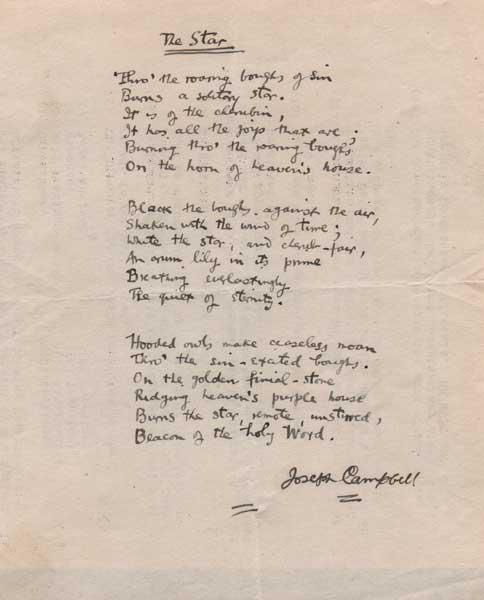 The Star
Thro' the roaring boughs of sin
Burns a solitary star.
It is of the cherubin,
It has all the joys that are;
Burning thro' the roaring boughs
On the horn of heaven's house.
Black the boughs against the air,
Shaken with the wind of time;
White the star, and cherub-fair,
An arum lily in its prime
Breathing everlastingly
The quiet of eternity.
Hooded owls make ceaseless moan
Thro' the sin-excited boughs.
On the golden finial-stone
Ridging heaven's purple house
Burns the star, remote, unstirred,
Beacon of the holy Word.
Joseph Campbell